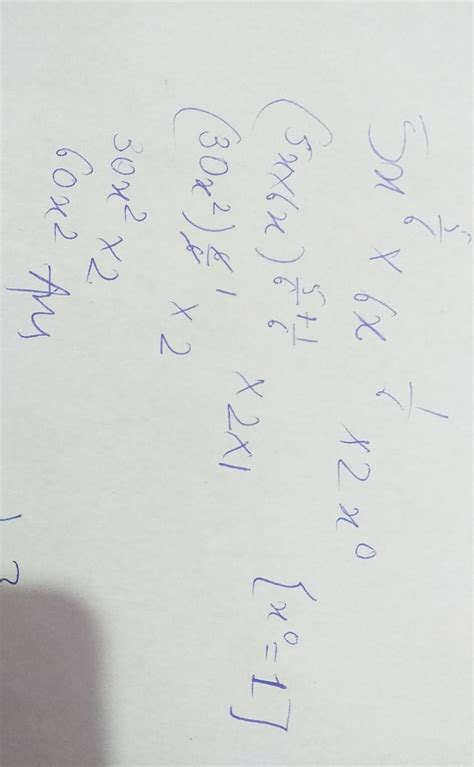 5x^(5/6) × 6x^(1/6) × 2x⁰
(5x×6x)^(5/6+1/6) × 2×1 [x⁰=1]
(30x²)^(6/6)¹ × 2
30x² × 2
60x² Ans